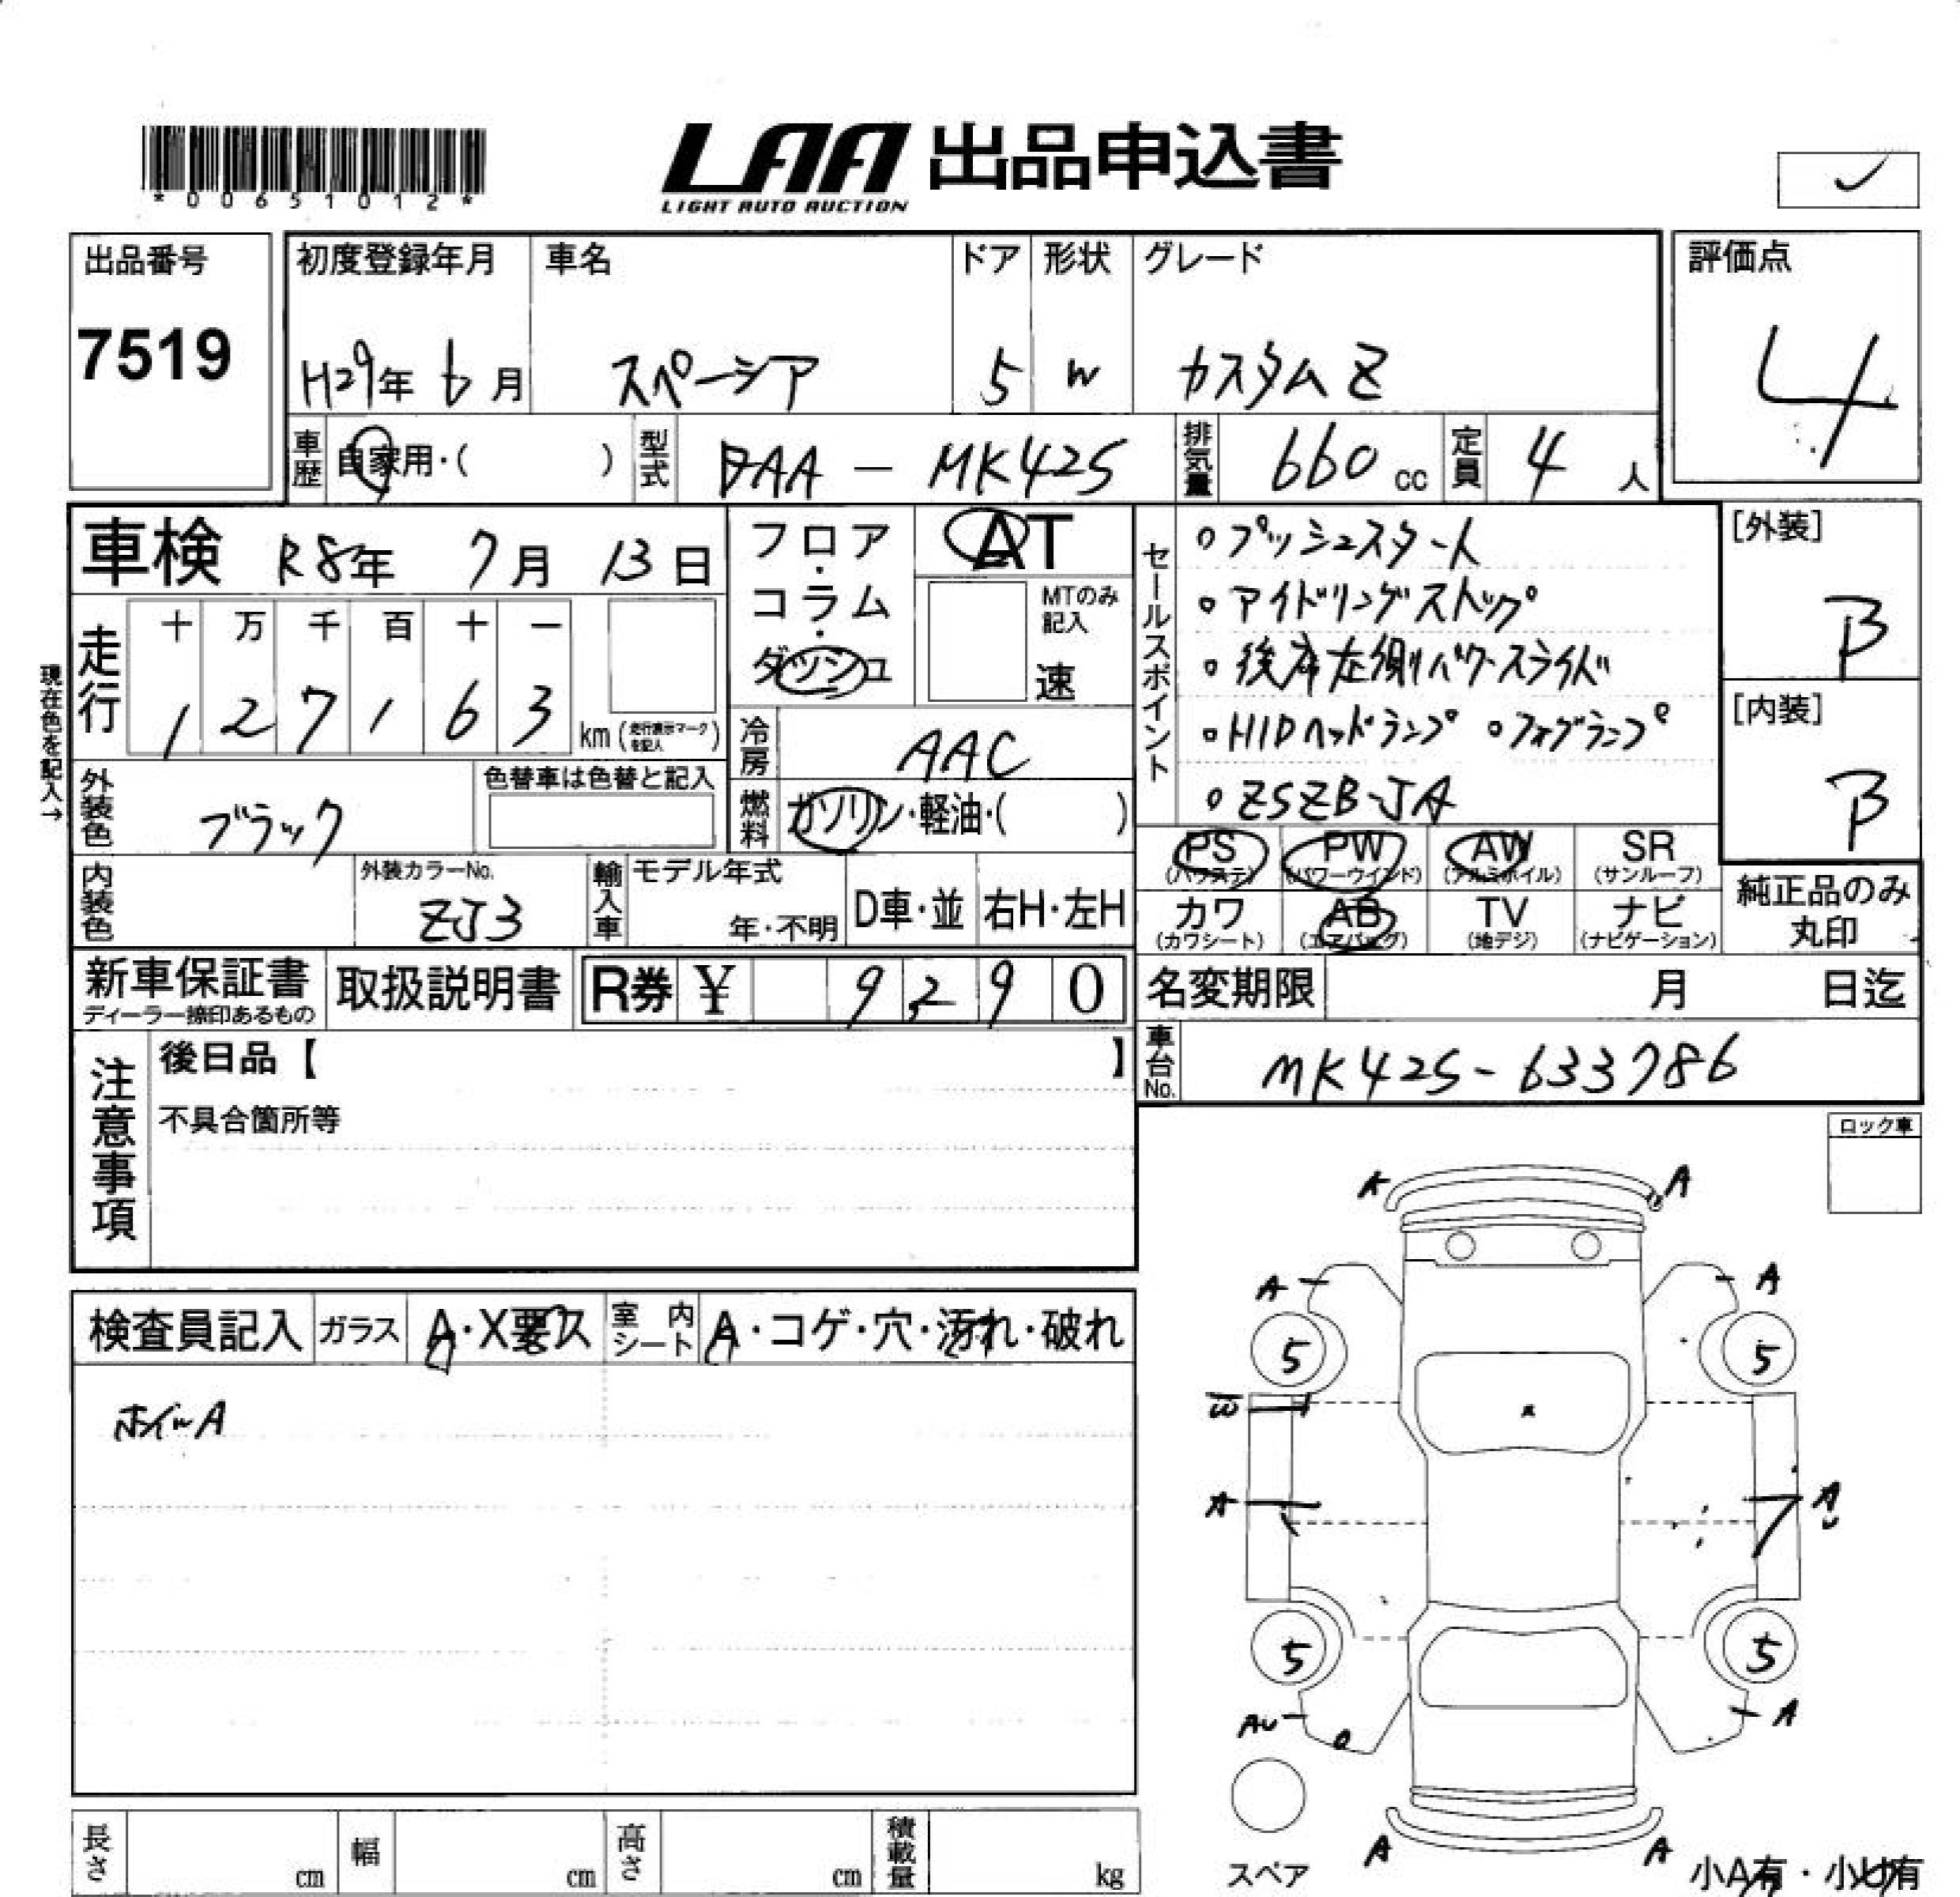 LAA 出品申込書
LIGHT AUTO AUCTION
*00651012*
出品番号
7519
初度登録年月
H29年 6月
車名
スペーシア
ドア
5
形状
W
グレード
カスタム Z
評価点
4
車歴 自家用・( )
型式 DAA - MK42S
排気量 660 cc
定員 4 人
車検 R8年 7月 13日
走行
十 万 千 百 十 一
1 2 7 1 6 3 km (走行表示マークを記入)
現在色を記入→
外装色 ブラック
色替車は色替と記入
内装色
外装カラーNo.
ZJ3
フロア・コラム・ダッシュ
AT
MTのみ記入
速
冷房 AAC
燃料 ガソリン・軽油・( )
輸入車 モデル年式
年・不明
D車・並 右H・左H
セールスポイント
○プッシュスタート
○アイドリングストップ
○後席左側パワースライド
○HIDヘッドランプ ○フォグランプ
○ZSZB-JA
[外装]
B
[内装]
B
PS (パワステ) PW (パワーウインド) AW (アルミホイル) SR (サンルーフ)
カワ (カワシート) AB (エアバッグ) TV (地デジ) ナビ (ナビゲーション)
純正品のみ丸印
新車保証書
ディーラー捺印あるもの
取扱説明書
R券 ¥ 9290
名変期限 月 日迄
車台No. MK42S-633786
注意事項
後日品【 】
不具合箇所等
ロック車
検査員記入 ガラス A・X要ス 室内シート A・コゲ・穴・汚れ・破れ
ホイールA
A A
A A
5 5
W
A A
U
5 5
AU A
A A
スペア
小A有・小U有
長さ cm 幅 cm 高さ cm 積載量 kg